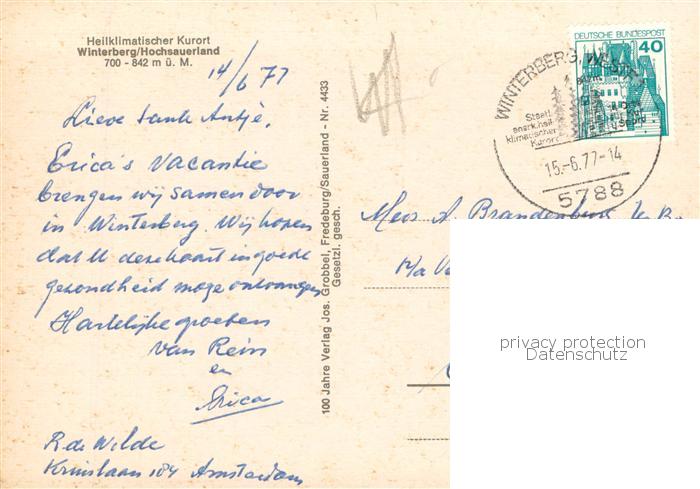 Heilklimatischer Kurort
Winterberg/Hochsauerland
700 - 842 m ü. M.
14/6 77
Lieve tante Antje,
Erica's vacantie
brengen wij samen door
in Winterberg. Wij hopen
dat U deze kaart in goede
gezondheid moge ontvangen
Hartelijke groeten
van Rein
en
Erica
R de Wilde
104 Amsterdam
100 Jahre Verlag Jos. Grobbel, Fredeburg/Sauerland - Nr. 4433
Gesetzl. gesch.
DEUTSCHE BUNDESPOST
40
WINTERBERG, WESTF
Staatl.
anerk. heil-
klimatischer
Kurort
15.-6.77-14
5788
A. Brandenburg
p/a
privacy protection
Datenschutz